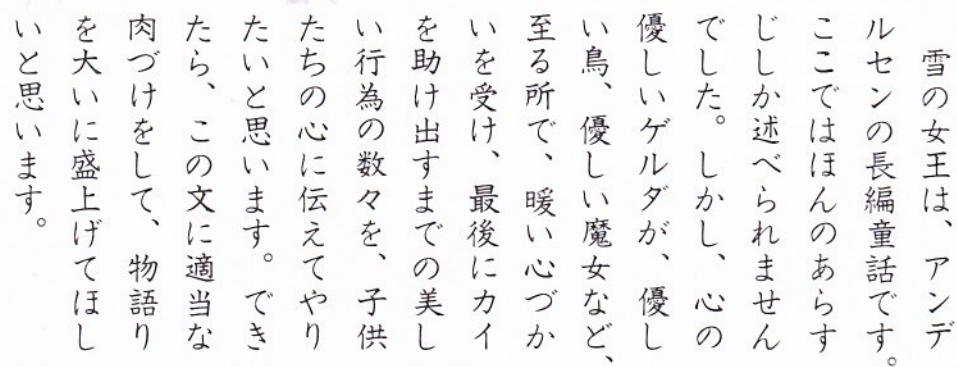 雪の女王は、アンデ
ルセンの長編童話です。
ここではほんのあらす
じしか述べられません
でした。しかし、心の
優しいゲルダが、優し
い鳥、優しい魔女など、
至る所で、暖い心づか
いを受け、最後にカイ
を助け出すまでの美し
い行為の数々を、子供
たちの心に伝えてやり
たいと思います。でき
たら、この文に適当な
肉づけをして、物語り
を大いに盛上げてほし
いと思います。